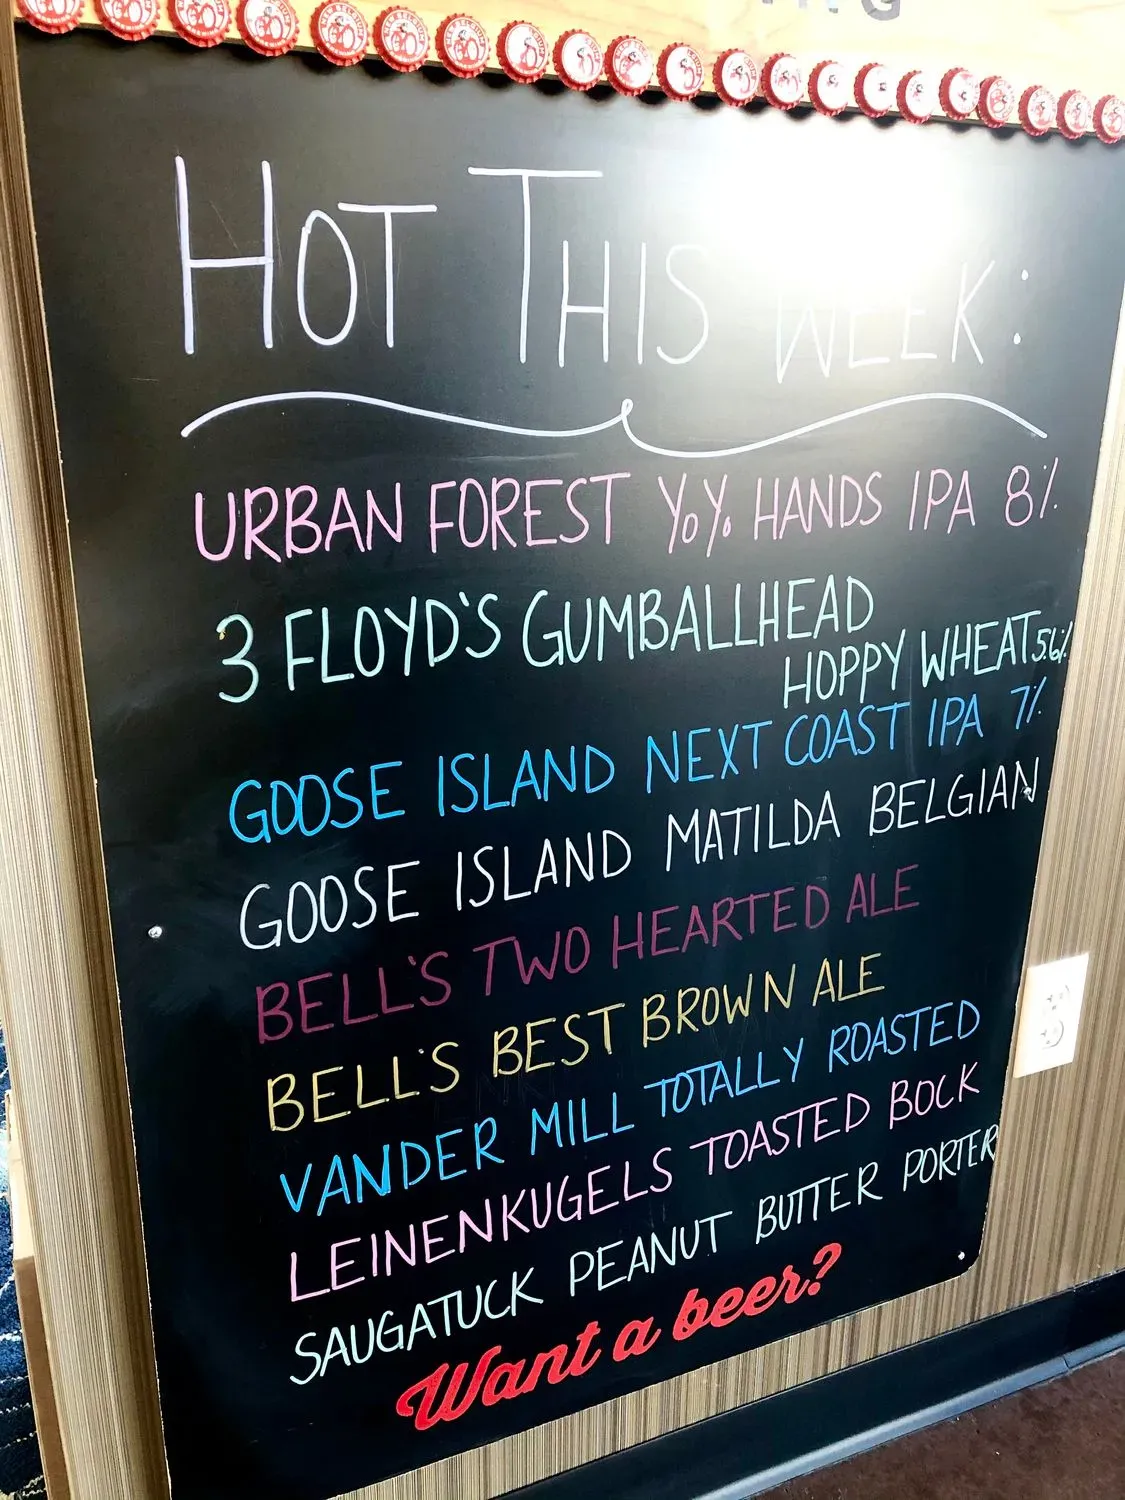 HOT THIS WEEK:
URBAN FOREST Yo Yo HANDS IPA 8%
3 FLOYD'S GUMBALLHEAD
HOPPY WHEAT 5.6%
GOOSE ISLAND NEXT COAST IPA 7%
GOOSE ISLAND MATILDA BELGIAN
BELL'S TWO HEARTED ALE
BELL'S BEST BROWN ALE
VANDER MILL TOTALLY ROASTED
LEINENKUGELS TOASTED BOCK
SAUGATUCK PEANUT BUTTER PORTER
Want a beer?